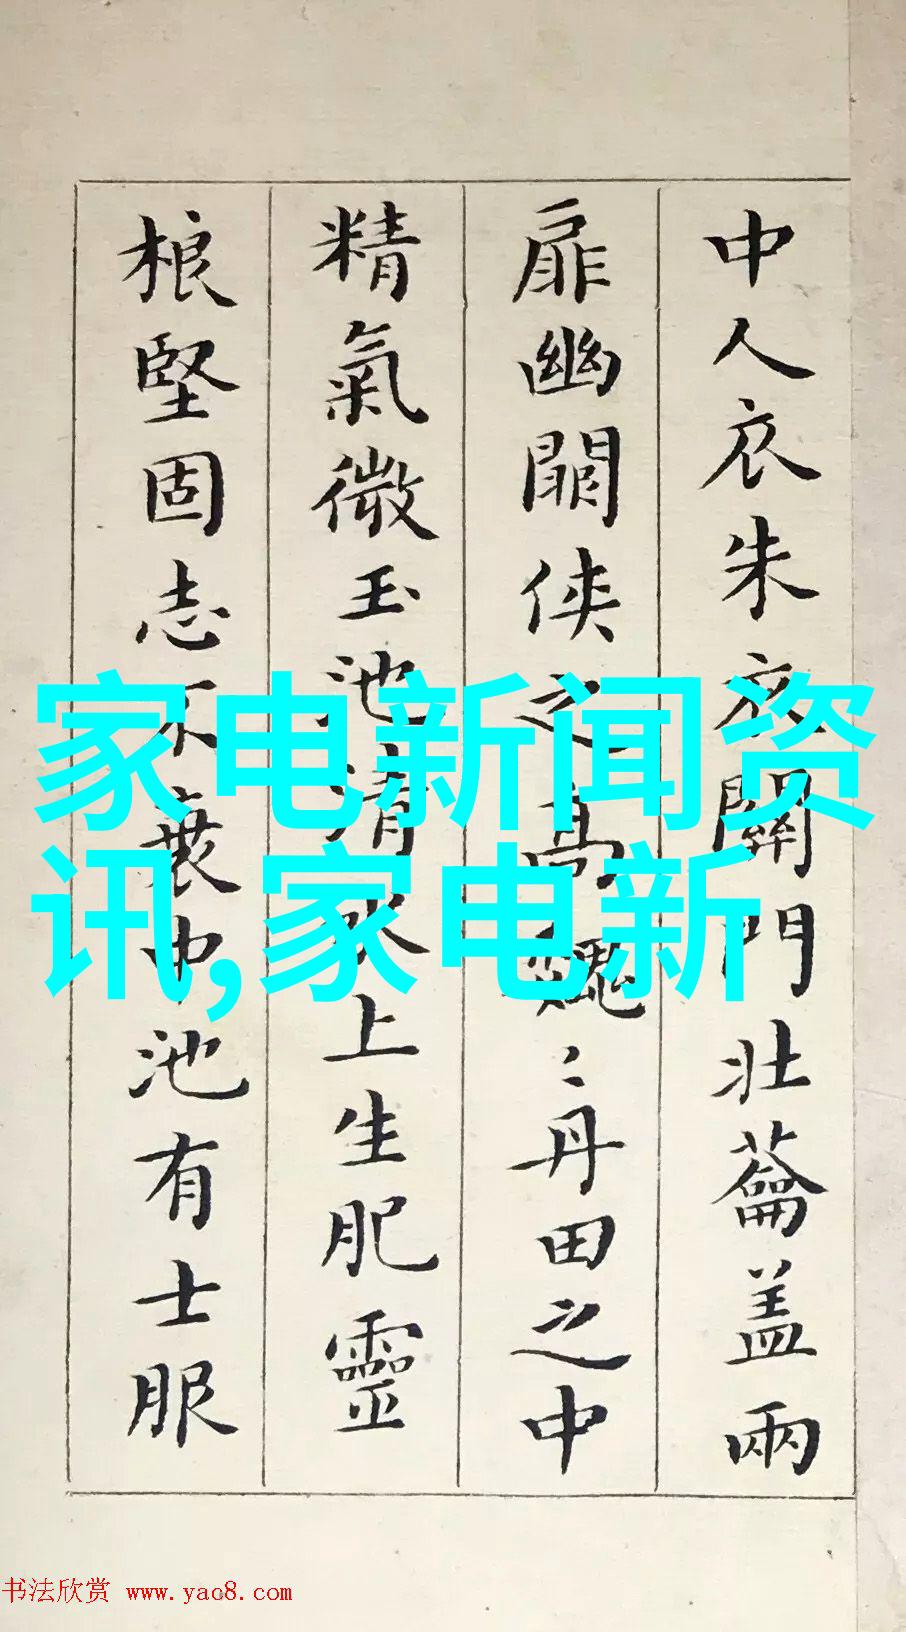 中人衣朱衣關門壯蘥盖兩
扉幽闕侠之高巍〻丹田之中
精氣微玉池清水上生肥靈
根堅固志不衰中池有士服
家电新闻资
讯,家电新
书法欣赏 www.yac8.com